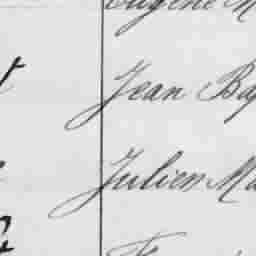 Eugène M
Jean Bap
Julien Ma